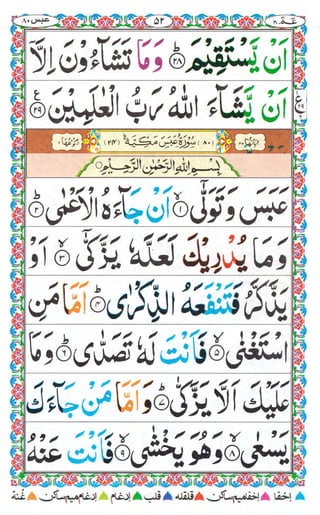 عبس ٨٠ ٥٢ عمّ ٣٠
اَنْ يَّسْتَقِيْمَ ﴿٢٨﴾ وَمَا تَشَآءُوْنَ اِلَّاۤ
اَنْ يَّشَآءَ اللّٰهُ رَبُّ الْعٰلَمِيْنَ ﴿٢٩﴾
(٨٠) سُوْرَةُ عَبَسَ مَكِّيَّةٌ (٢٤)
بِسْمِ اللّٰهِ الرَّحْمٰنِ الرَّحِيْمِ
عَبَسَ وَتَوَلّٰىۤ ﴿١﴾ اَنْ جَآءَهُ الْاَعْمٰى ﴿٢﴾
وَمَا يُدْرِيْكَ لَعَلَّهٗ يَزَّكّٰىۤ ﴿٣﴾ اَوْ
يَذَّكَّرُ فَتَنْفَعَهُ الذِّكْرٰى ﴿٤﴾ اَمَّا مَنِ
اسْتَغْنٰى ﴿٥﴾ فَاَنْتَ لَهٗ تَصَدّٰى ﴿٦﴾ وَمَا
عَلَيْكَ اَلَّا يَزَّكّٰى ﴿٧﴾ وَاَمَّا مَنْ جَآءَكَ
يَسْعٰى ﴿٨﴾ وَهُوَ يَخْشٰى ﴿٩﴾ فَاَنْتَ عَنْهُ
اخفا اخفامیم ساکن قلقله قلب ادغام ادغام میم ساکن غنه